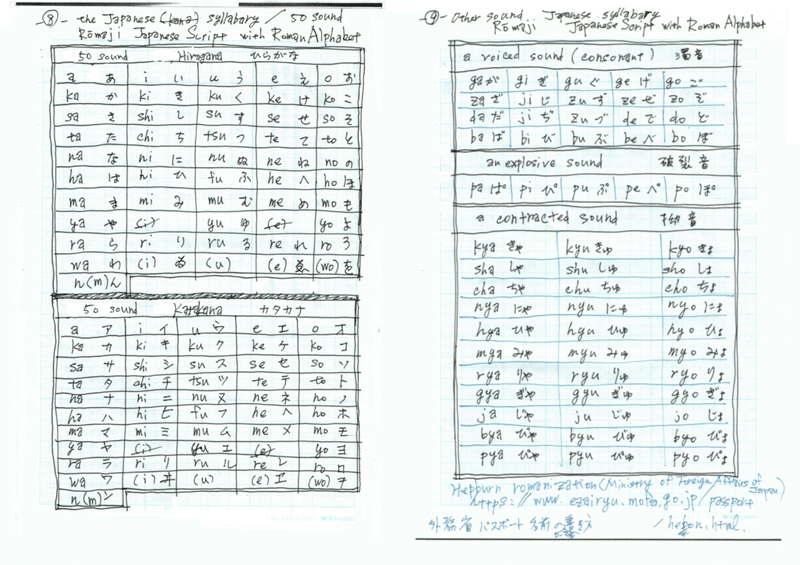 ⑧- the Japanese (kana) syllabary / 50 sound
Rōmaji Japanese Script with Roman Alphabet
50 sound Hiragana ひらがな
a あ i い u う e え o お
ka か ki き ku く ke け ko こ
sa さ shi し su す se せ so そ
ta た chi ち tsu つ te て to と
na な ni に nu ぬ ne ね no の
ha は hi ひ fu ふ he へ ho ほ
ma ま mi み mu む me め mo も
ya や (i) yu ゆ (e) yo よ
ra ら ri り ru る re れ ro ろ
wa わ (i) ゐ (u) (e) ゑ (wo) を
n(m) ん
50 sound Katakana カタカナ
a ア i イ u ウ e エ o オ
ka カ ki キ ku ク ke ケ ko コ
sa サ shi シ su ス se セ so ソ
ta タ chi チ tsu ツ te テ to ト
na ナ ni ニ nu ヌ ne ネ no ノ
ha ハ hi ヒ fu フ he ヘ ho ホ
ma マ mi ミ mu ム me メ mo モ
ya ヤ (i) yu エ (e) yo ヨ
ra ラ ri リ ru ル re レ ro ロ
wa ワ (i) ヰ (u) (e) ヱ (wo) ヲ
n(m) ン
⑨- Other sound Japanese syllabary
Rōmaji Japanese Script with Roman Alphabet
a voiced sound (consonant) 濁音
ga が gi ぎ gu ぐ ge げ go ご
za ざ ji じ zu ず ze ぜ zo ぞ
da だ ji ぢ zu づ de で do ど
ba ば bi び bu ぶ be べ bo ぼ
an explosive sound 破裂音
pa ぱ pi ぴ pu ぷ pe ぺ po ぽ
a contracted sound 拗音
kya きゃ kyu きゅ kyo きょ
sha しゃ shu しゅ sho しょ
cha ちゃ chu ちゅ cho ちょ
nya にゃ nyu にゅ nyo にょ
hya ひゃ hyu ひゅ hyo ひょ
mya みゃ myu みゅ myo みょ
rya りゃ ryu りゅ ryo りょ
gya ぎゃ gyu ぎゅ gyo ぎょ
ja じゃ ju じゅ jo じょ
bya びゃ byu びゅ byo びょ
pya ぴゃ pyu ぴゅ pyo ぴょ
Hepburn romanization (Ministry of Foreign Affairs of Japan)
https://www.ezairyu.mofa.go.jp/passport
/hebon.html.
外務省 パスポート 名前の書き方